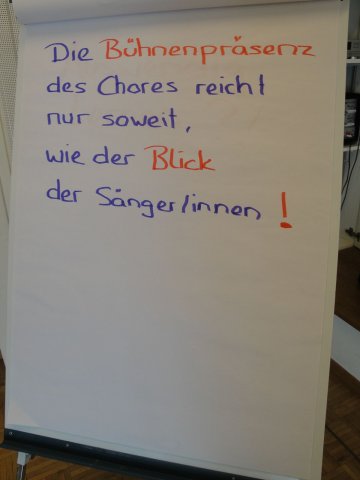 Die Bühnenpräsenz
des Chores reicht
nur soweit,
wie der Blick
der Sänger/innen !